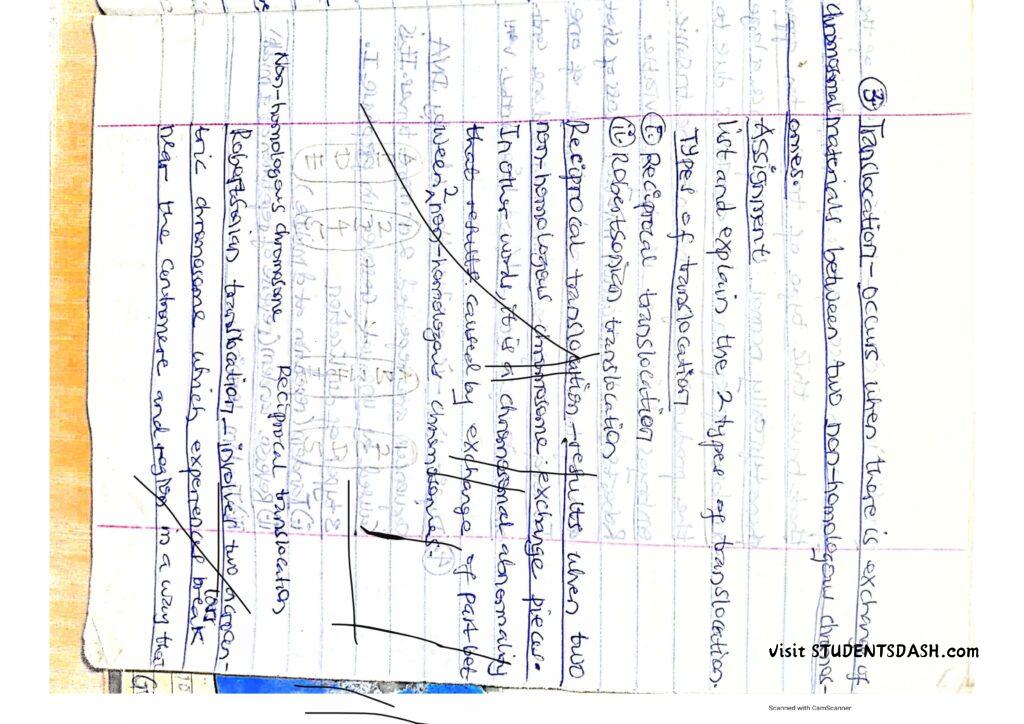 3. Tanslocation - occurs when there is exchange of
chromosomal materials between two non-homologous chromos-
omes.
Assignment
list and explain the 2 types of translocation.
Types of translocation
i. Reciprocal translocation
ii. Robertsonian translocation
Reciprocal translocation - results when two
non-homologous chromosome exchange pieces.
In other words, it is a chromosomal abnormality
that results caused by exchange of part bet
ween 2 non-homologous chromosomes.
Non-homologous chromosome Reciprocal translocation
Robertsonian translocation - involves two acrocen-
tric chromosome which experienced break
near the centromere and region in a way that
visit STUDENTSDASH.com
Scanned with CamScanner